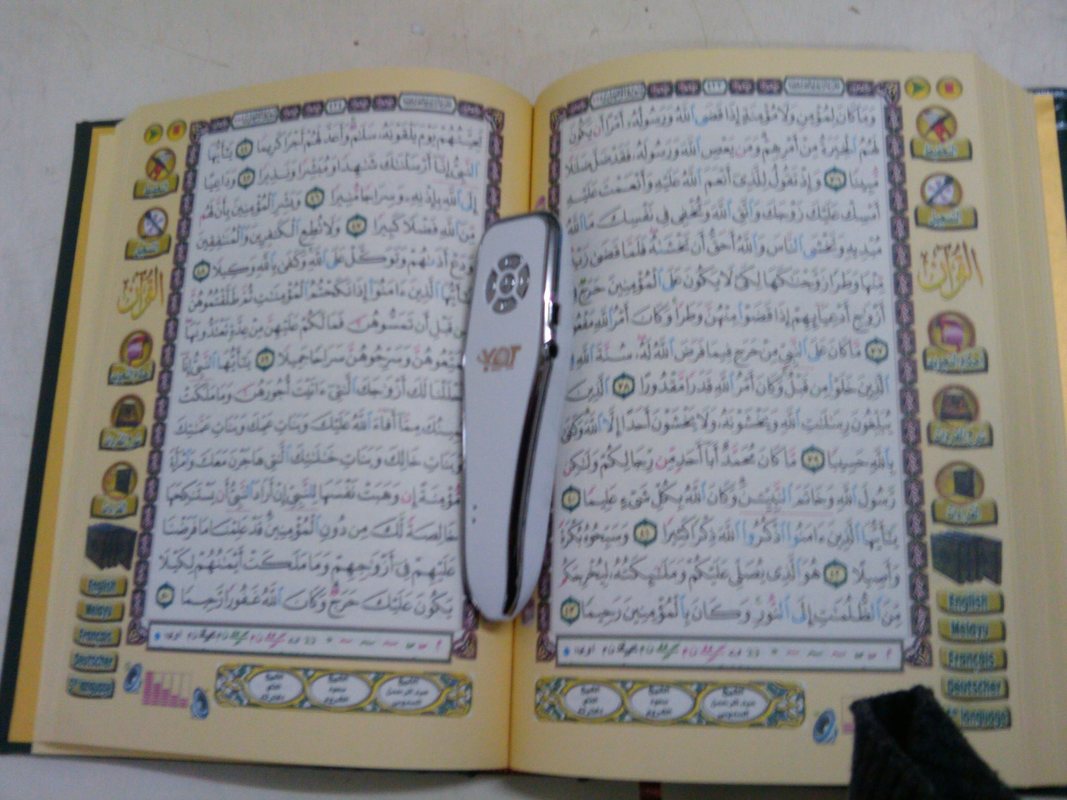 وَمَا كَانَ لِمُؤْمِنٍ وَلَا مُؤْمِنَةٍ إِذَا قَضَى ٱللَّهُ وَرَسُولُهُۥٓ أَمْرًا أَن يَكُونَ
لَهُمُ ٱلْخِيَرَةُ مِنْ أَمْرِهِمْ وَمَن يَعْصِ ٱللَّهَ وَرَسُولَهُۥ فَقَدْ ضَلَّ ضَلَٰلًا
مُّبِينًا ٣٦ وَإِذْ تَقُولُ لِلَّذِىٓ أَنْعَمَ ٱللَّهُ عَلَيْهِ وَأَنْعَمْتَ عَلَيْهِ
أَمْسِكْ عَلَيْكَ زَوْجَكَ وَٱتَّقِ ٱللَّهَ وَتُخْفِى فِى نَفْسِكَ مَا ٱللَّهُ
مُبْدِيهِ وَتَخْشَى ٱلنَّاسَ وَٱللَّهُ أَحَقُّ أَن تَخْشَىٰهُ فَلَمَّا قَضَىٰ زَيْدٌ
مِّنْهَا وَطَرًا زَوَّجْنَٰكَهَا لِكَىْ لَا يَكُونَ عَلَى ٱلْمُؤْمِنِينَ حَرَجٌ فِىٓ
أَزْوَٰجِ أَدْعِيَآئِهِمْ إِذَا قَضَوْا۟ مِنْهُنَّ وَطَرًا وَكَانَ أَمْرُ ٱللَّهِ مَفْعُولًا
٣٧ مَّا كَانَ عَلَى ٱلنَّبِىِّ مِنْ حَرَجٍ فِيمَا فَرَضَ ٱللَّهُ لَهُۥ سُنَّةَ ٱللَّهِ فِى
ٱلَّذِينَ خَلَوْا۟ مِن قَبْلُ وَكَانَ أَمْرُ ٱللَّهِ قَدَرًا مَّقْدُورًا ٣٨ ٱلَّذِينَ
يُبَلِّغُونَ رِسَٰلَٰتِ ٱللَّهِ وَيَخْشَوْنَهُۥ وَلَا يَخْشَوْنَ أَحَدًا إِلَّا ٱللَّهَ وَكَفَىٰ
بِٱللَّهِ حَسِيبًا ٣٩ مَّا كَانَ مُحَمَّدٌ أَبَآ أَحَدٍ مِّن رِّجَالِكُمْ وَلَٰكِن
رَّسُولَ ٱللَّهِ وَخَاتَمَ ٱلنَّبِيِّۦنَ وَكَانَ ٱللَّهُ بِكُلِّ شَىْءٍ عَلِيمًا ٤٠
يَٰٓأَيُّهَا ٱلَّذِينَ ءَامَنُوا۟ ٱذْكُرُوا۟ ٱللَّهَ ذِكْرًا كَثِيرًا ٤١ وَسَبِّحُوهُ بُكْرَةً
وَأَصِيلًا ٤٢ هُوَ ٱلَّذِى يُصَلِّى عَلَيْكُمْ وَمَلَٰٓئِكَتُهُۥ لِيُخْرِجَكُم
مِّنَ ٱلظُّلُمَٰتِ إِلَى ٱلنُّورِ وَكَانَ بِٱلْمُؤْمِنِينَ رَحِيمًا ٤٣
تَحِيَّتُهُمْ يَوْمَ يَلْقَوْنَهُۥ سَلَٰمٌ وَأَعَدَّ لَهُمْ أَجْرًا كَرِيمًا ٤٤ يَٰٓأَيُّهَا
ٱلنَّبِىُّ إِنَّآ أَرْسَلْنَٰكَ شَٰهِدًا وَمُبَشِّرًا وَنَذِيرًا ٤٥ وَدَاعِيًا
إِلَى ٱللَّهِ بِإِذْنِهِۦ وَسِرَاجًا مُّنِيرًا ٤٦ وَبَشِّرِ ٱلْمُؤْمِنِينَ بِأَنَّ لَهُم
مِّنَ ٱللَّهِ فَضْلًا كَبِيرًا ٤٧ وَلَا تُطِعِ ٱلْكَٰفِرِينَ وَٱلْمُنَٰفِقِينَ
وَدَعْ أَذَىٰهُمْ وَتَوَكَّلْ عَلَى ٱللَّهِ وَكَفَىٰ بِٱللَّهِ وَكِيلًا ٤٨
يَٰٓأَيُّهَا ٱلَّذِينَ ءَامَنُوٓا۟ إِذَا نَكَحْتُمُ ٱلْمُؤْمِنَٰتِ ثُمَّ طَلَّقْتُمُوهُنَّ
مِن قَبْلِ أَن تَمَسُّوهُنَّ فَمَا لَكُمْ عَلَيْهِنَّ مِنْ عِدَّةٍ تَعْتَدُّونَهَا
فَمَتِّعُوهُنَّ وَسَرِّحُوهُنَّ سَرَاحًا جَمِيلًا ٤٩ يَٰٓأَيُّهَا ٱلنَّبِىُّ إِنَّآ
أَحْلَلْنَا لَكَ أَزْوَٰجَكَ ٱلَّٰتِىٓ ءَاتَيْتَ أُجُورَهُنَّ وَمَا مَلَكَتْ
يَمِينُكَ مِمَّآ أَفَآءَ ٱللَّهُ عَلَيْكَ وَبَنَاتِ عَمِّكَ وَبَنَاتِ عَمَّٰتِكَ
وَبَنَاتِ خَالِكَ وَبَنَاتِ خَٰلَٰتِكَ ٱلَّٰتِى هَاجَرْنَ مَعَكَ وَٱمْرَأَةً
مُّؤْمِنَةً إِن وَهَبَتْ نَفْسَهَا لِلنَّبِىِّ إِنْ أَرَادَ ٱلنَّبِىُّ أَن يَسْتَنكِحَهَا
خَالِصَةً لَّكَ مِن دُونِ ٱلْمُؤْمِنِينَ قَدْ عَلِمْنَا مَا فَرَضْنَا
عَلَيْهِمْ فِىٓ أَزْوَٰجِهِمْ وَمَا مَلَكَتْ أَيْمَٰنُهُمْ لِكَيْلَا
يَكُونَ عَلَيْكَ حَرَجٌ وَكَانَ ٱللَّهُ غَفُورًا رَّحِيمًا ٥٠
القرآن
English
Melayu
Français
Deutscher
language
القرآن
English
Melayu
Français
Deutscher
language